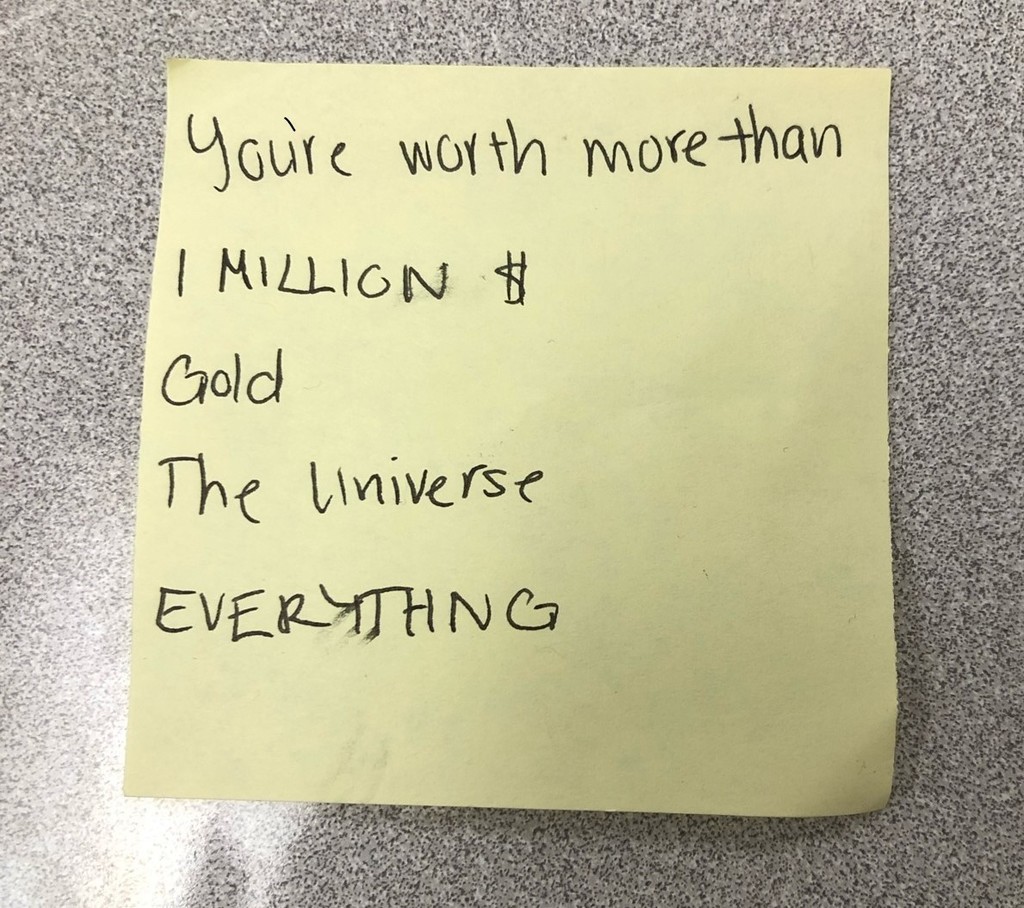 You're worth more than
1 MILLION $
Gold
The Universe
EVERYTHNG